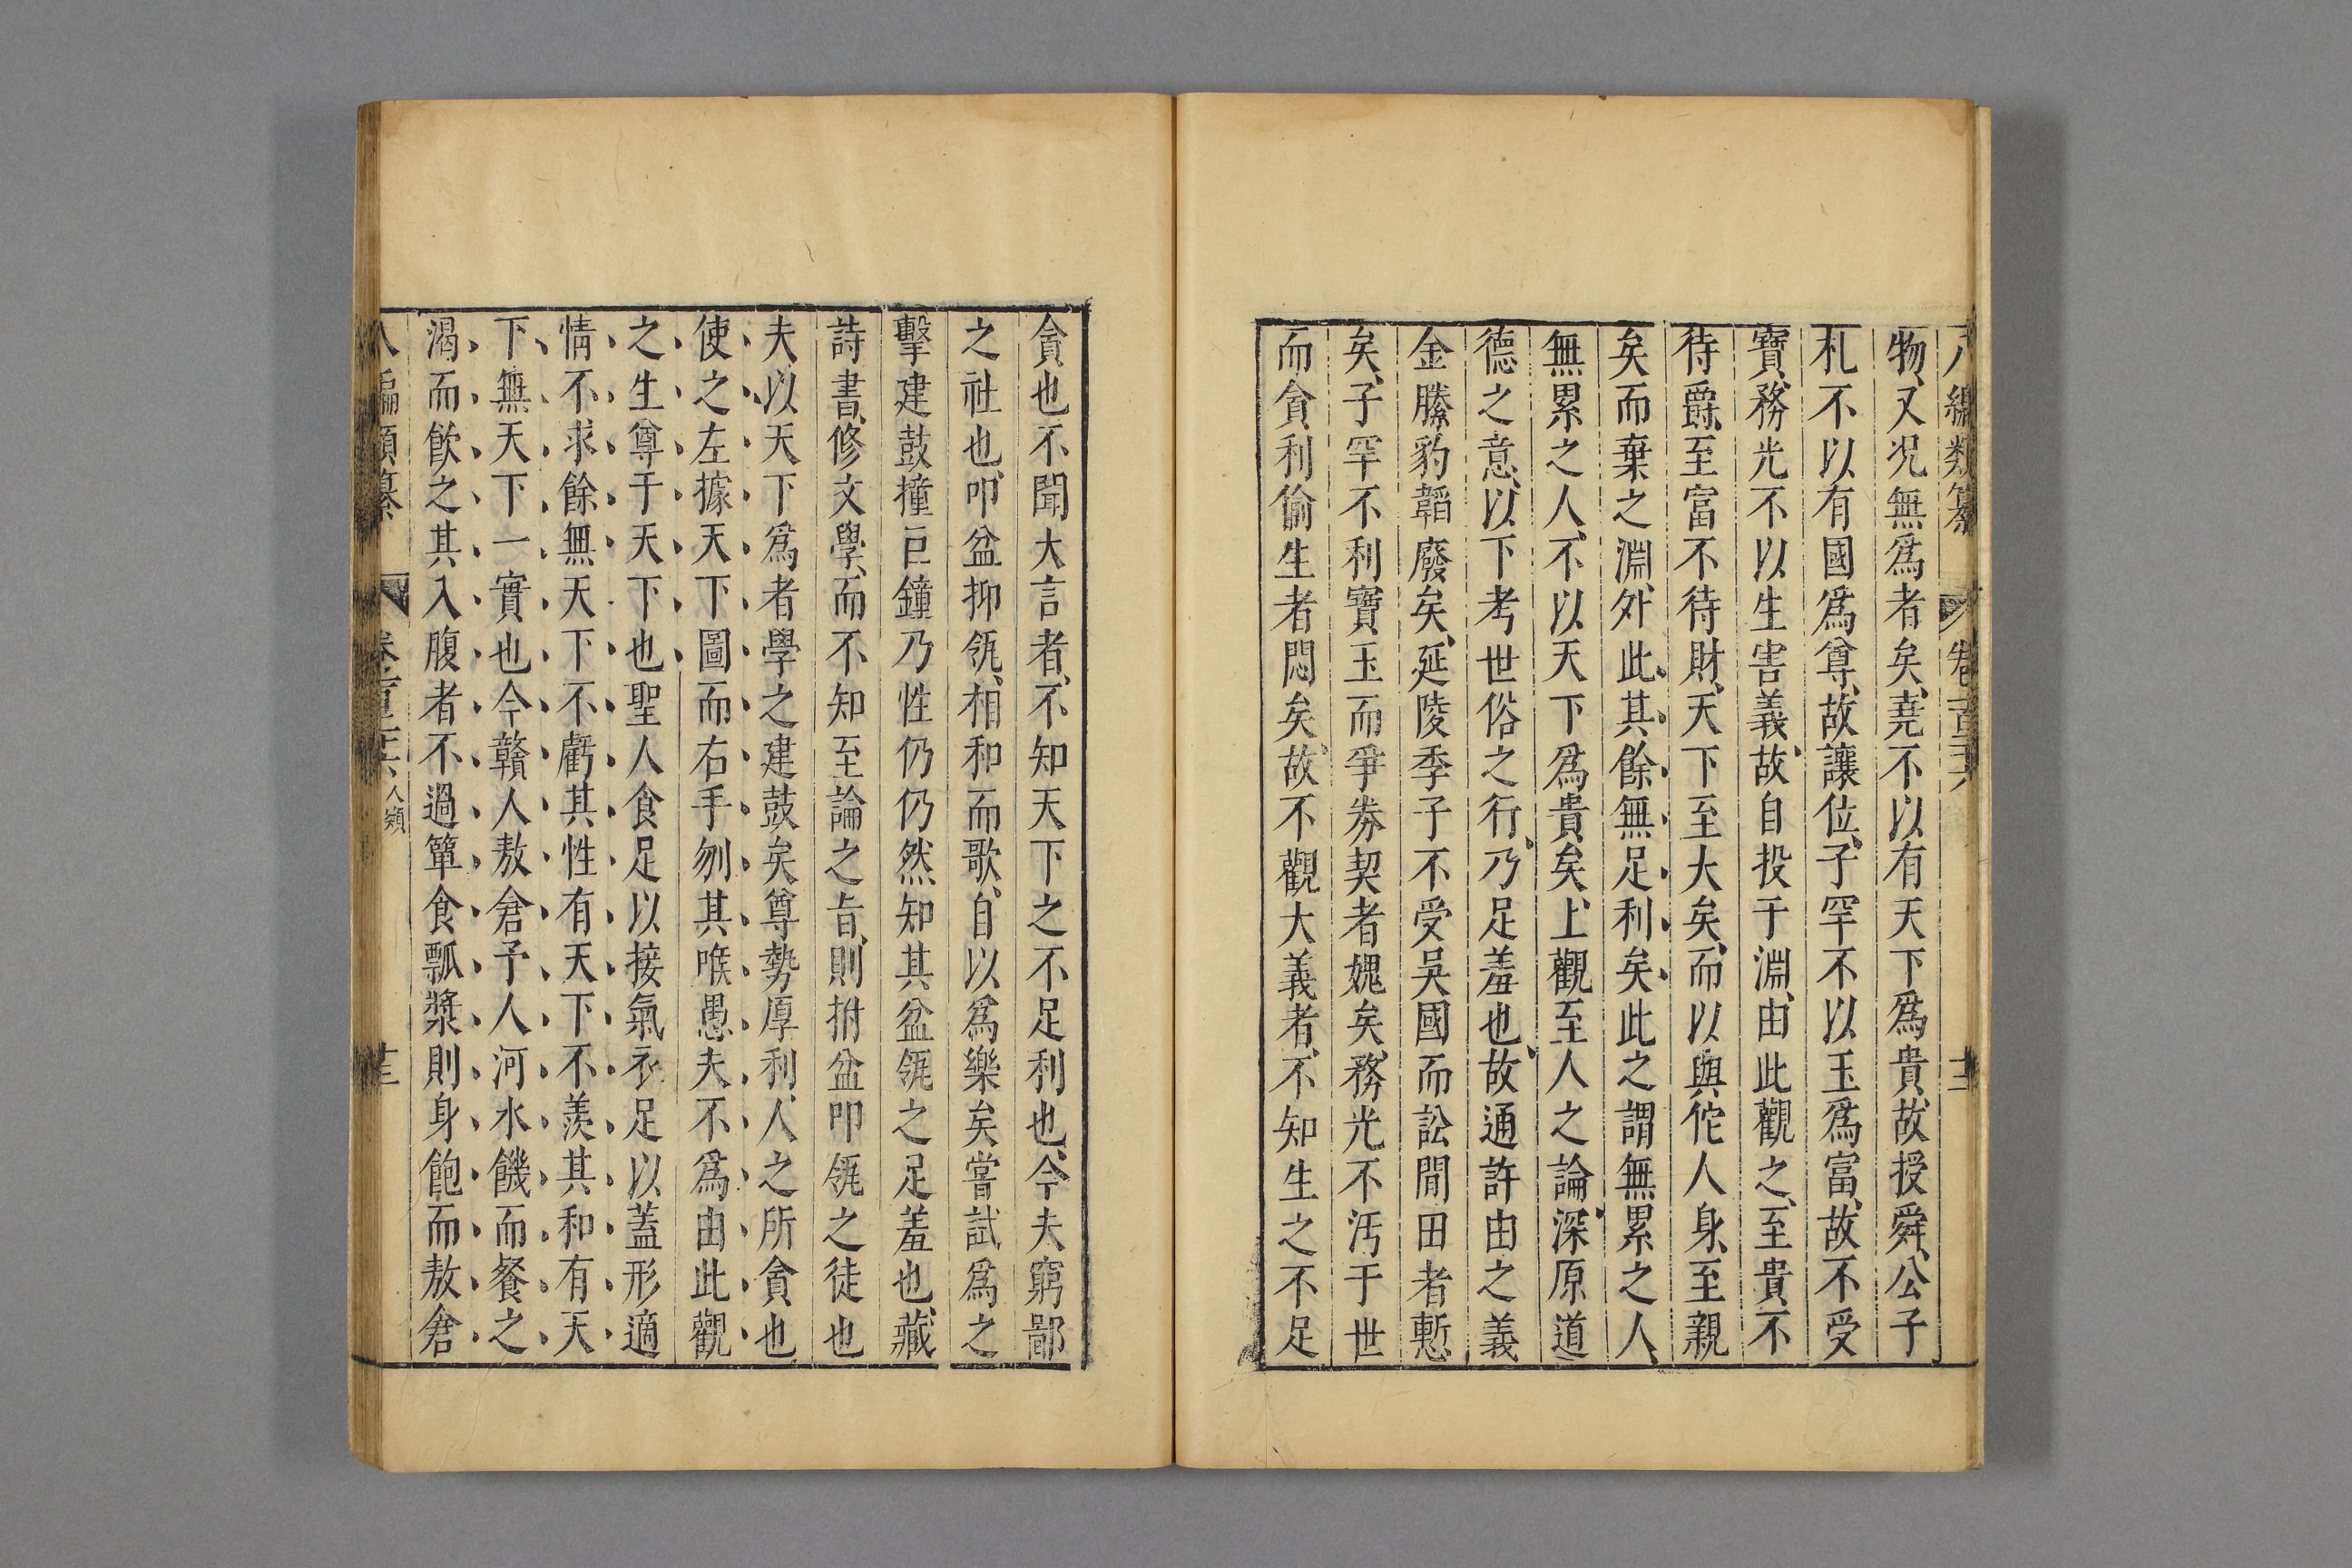 八編類纂 卷一百三十六 十二
物又况無爲者矣堯不以有天下爲貴故授舜公子
札不以有國爲尊故讓位子罕不以玉爲富故不受
寶務光不以生害義故自投于淵由此觀之至貴不
待爵至富不待財天下至大矣而以與佗人身至親
矣而棄之淵外此其餘無足利矣此之謂無累之人
無累之人不以天下爲貴矣上觀至人之論深原道
德之意以下考世俗之行乃足羞也故通許由之義
金縢豹韜廢矣延陵季子不受吳國而訟閒田者慙
矣子罕不利寶玉而爭券契者媿矣務光不汚于世
而貪利偷生者悶矣故不觀大義者不知生之不足
貪也不聞大言者不知天下之不足利也今夫窮鄙
之社也叩盆拊瓴相和而歌自以爲樂矣嘗試爲之
擊建鼓撞巨鐘乃性仍仍然知其盆瓴之足羞也藏
詩書修文學而不知至論之旨則拊盆叩瓴之徒也
夫以天下爲者學之建鼓矣尊勢厚利人之所貪也
使之左據天下圖而右手刎其喉愚夫不爲由此觀
之生尊于天下也聖人食足以接氣衣足以蓋形適
情不求餘無天下不虧其性有天下不羨其和有天
下無天下一實也今贛人敖倉予人河水饑而餐之
渴而飮之其入腹者不過簞食瓢漿則身飽而敖倉
八編類纂 卷一百三十六 人類 十三